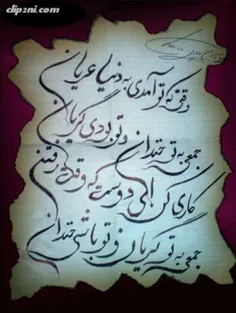 clip2ni.com
وقتی که تو آمدی به دنیا عریان
جمعی به تو خندان و تو بودی گریان
کاری کن ای دوست که وقت رفتن
جمعی به تو گریان و تو باشی خندان